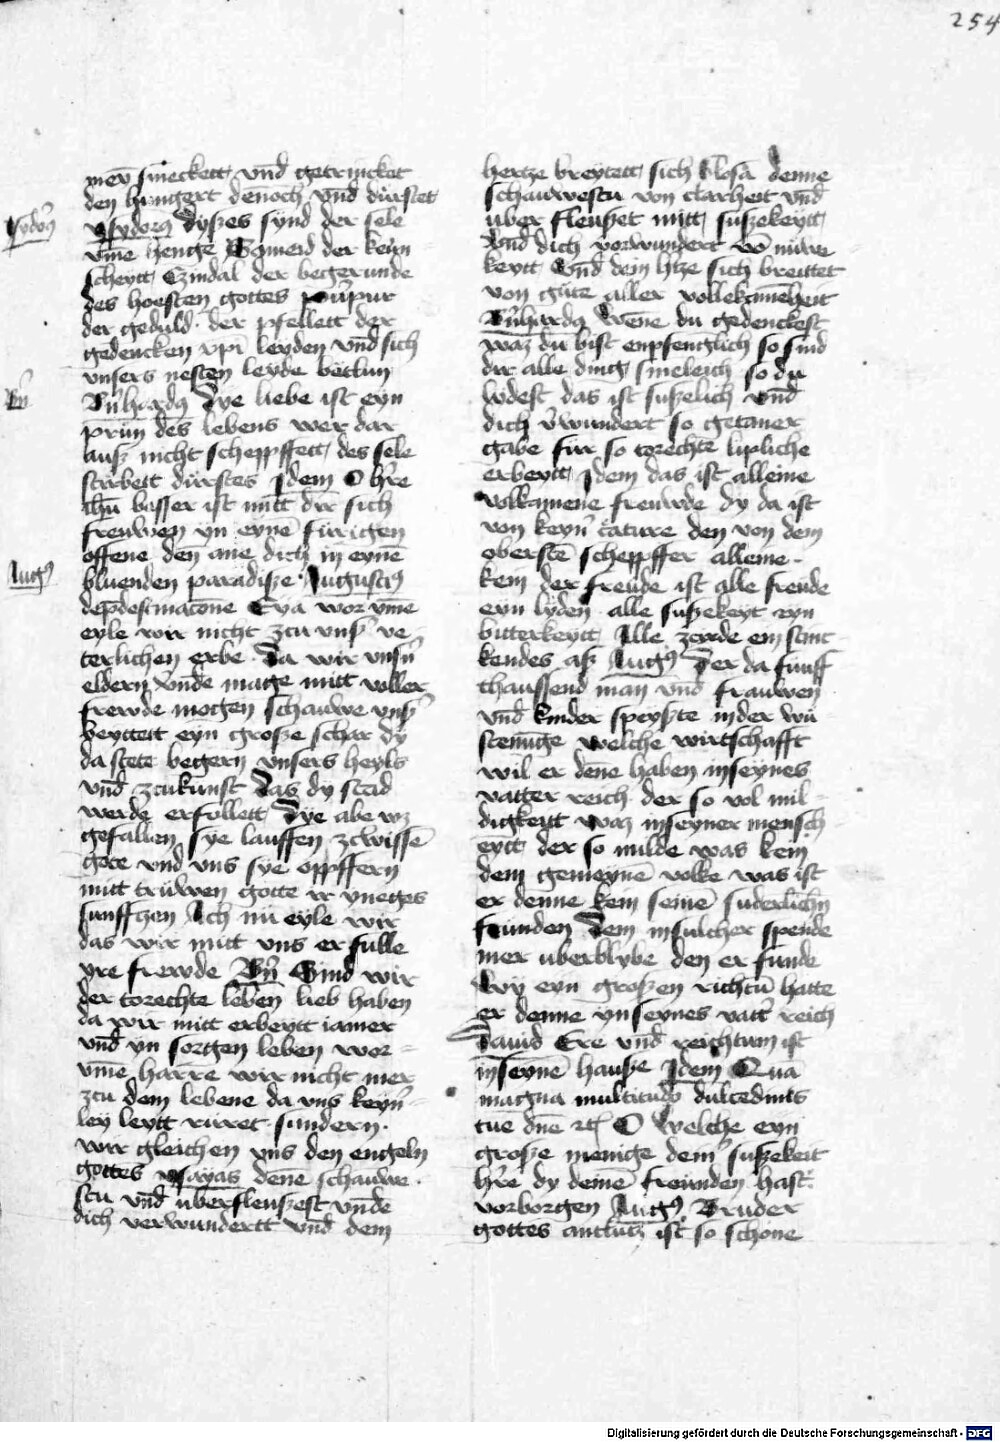 254
smeckett vnd getrincket
den hungert dennoch vnd dürstet
ysydorus Dyszes synd der sele
vme henge
scheytt Czindal der begerunde
des hoesten gottes purpur
der geduld · der pfellett der
gedencken xpi leyden vnd sich
vnsers nesten leyde
Bernhardus Dye liebe ist eyn
des lebens wer dar
ausz nicht scheppfett des sele
stirbett dürstes Idem O hre
ihu basser ist mitt dir sich
freuwen yn eyne fürigen
offene den ane dich in eyne
bluenden paradisze · Augustus
Eya wor vme
eyle wir nicht zcu vnser ve
terlichen erbe · Da wir vnser
eldern vnde mage mitt voller
frewde mogen schauwe vnser
beyttett eyn grosze schar dy
da stete begern vnsers heyls
vnd zcukunst Das dy stad
werde erfollett Dye abe
gefallen sye lauffen zcwissen
gote vnd vns sye oppffern
mitt trüwen gotte
sunfftzen Ach nu eyle wir
das wir mitt vns er fulle
yre frewde Bn Sind wir
der torechte leben lieb haben
da wir mitt erbeytt iamer
vnd yn sorgen leben wor
vme harre wir nicht mer
zcu dem lebene da vns keyn
ley leytt ruret sundern ·
wir gleichen vns den engeln
gottes ysayas denne schauwe
stu vnd uberfleuszest vnde
dich verwundertt vnd dem
ysydorus
Bn
Augus
hertze breytett sich Glosa denne
schauwestu von clarheit vnd
uber fleuszet mitt suszekeytt
vnd dich vorwundert
keytt Vnd dein htze sich breittet
von güte aller vollekameheit
Bnhardus Wene du gedenckest
waz du bist enpfenglich so sind
dir alle ding smeleich so du
lydest das ist suszelich vnd
dich vwundert so getaner
gabe für so torechte lipliche
erbeytt Idem das ist alleine
volkamene freuwde dy da ist
von keyn cature den von dem
oberste scheppffer alleine ·
kein der freude ist alle freude
eyn lyden · alle suszekeyt eyn
bitterkeytt Alle zcirde ein stinc
kendes asz Augus Der da funff
thaussend man vnd frauwen
vnd kinder speyszte inder wü
stenuge welche wirtschafft
wil er dene haben inseynes
vatter reich der so vol mil
digkeitt waz inseyner mensch
eytt der so milde was kein
dem gemeyne volke was ist
er denne kein seine
frunden Dem insulcher spende
mer uberblybe den er funde
Wy eyn groszen richtum hatte
er denne ynseynes vatter reich
Dauid Ere vnd reichtum ist
inseyne hausze Idem Qua
magna multitudo dulcedinis
tue dne etc O Welche eyn
grosze menige deiner suszekeit
hre dy deine freunden hast
vorborgen Augus Bruder
gottes antlitz ist so schone
Digitalisierung gefördert durch die Deutsche Forschungsgemeinschaft - DFG